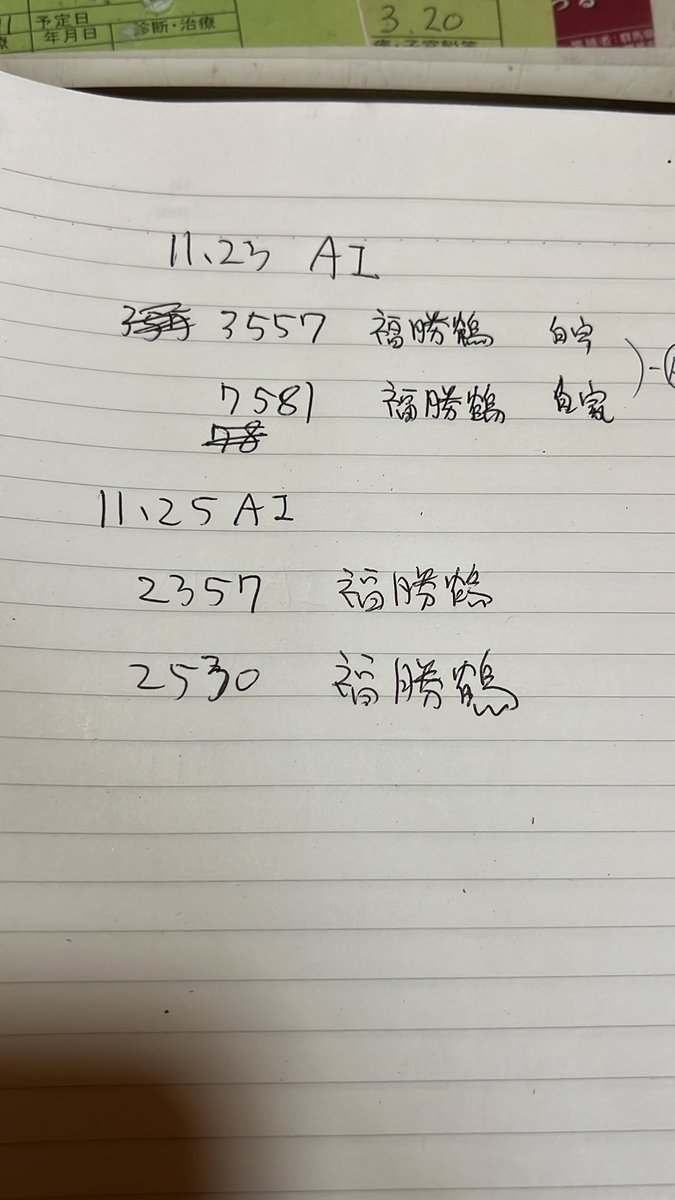 予定日
年月日
診断・治療
3.20
11、23 AI
3557 福勝鶴 自家
7581 福勝鶴 自家
11、25 AI
2357 福勝鶴
2530 福勝鶴